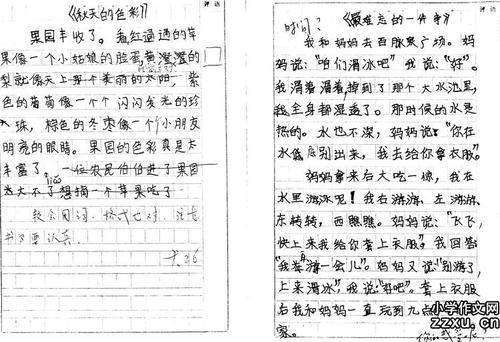 评语
《秋天的色彩》
果园丰收了。看红通通的苹
果像一个小姑娘的脸蛋黄澄澄的
梨就像天上那个美丽的太阳，紫
色的葡萄像一个个闪闪发光的珍
珠，棕色的冬枣像一个个小朋友
明亮的眼睛。果园的色彩真是太
丰富了。一位农民伯伯进了果园
想摘一个苹果吃了
书写要认真。
评语
时间？
《最难忘的一件事》
我和妈妈去百脉泉广场。妈
妈说：“咱们滑冰吧”我说：“好”。
我滑着滑着掉到了那个大水池里，
我全身都湿透了。那时候的水是
热的。水也不深，妈妈说：“你在
水低底别出来，我去给你拿衣服”
妈妈拿来后大吃一惊，我在
水里游泳呢！我右游游，左游游，
东转转，西瞧瞧。妈妈说：“飞飞，
快上来我给你套上衣服”我回答
“我再游一会儿”。妈妈又说“别游了，
上来滑冰”，我说“好吧”。套上衣服
后我和妈妈一直玩到九点
家。
小学作文网
zzxu.cn